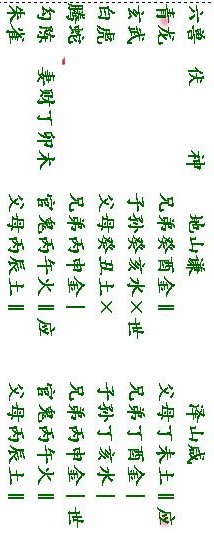 六兽 伏 神 地山谦 泽山咸
青龙 兄弟癸酉金‖ 父母丁未土‖应
玄武 子孙癸亥水×世 兄弟丁酉金|
白虎 父母癸丑土× 子孙丁亥水|
腾蛇 兄弟丙申金| 兄弟丙申金|世
勾陈 妻财丁卯木 官鬼丙午火‖应 官鬼丙午火‖
朱雀 父母丙辰土‖ 父母丙辰土‖